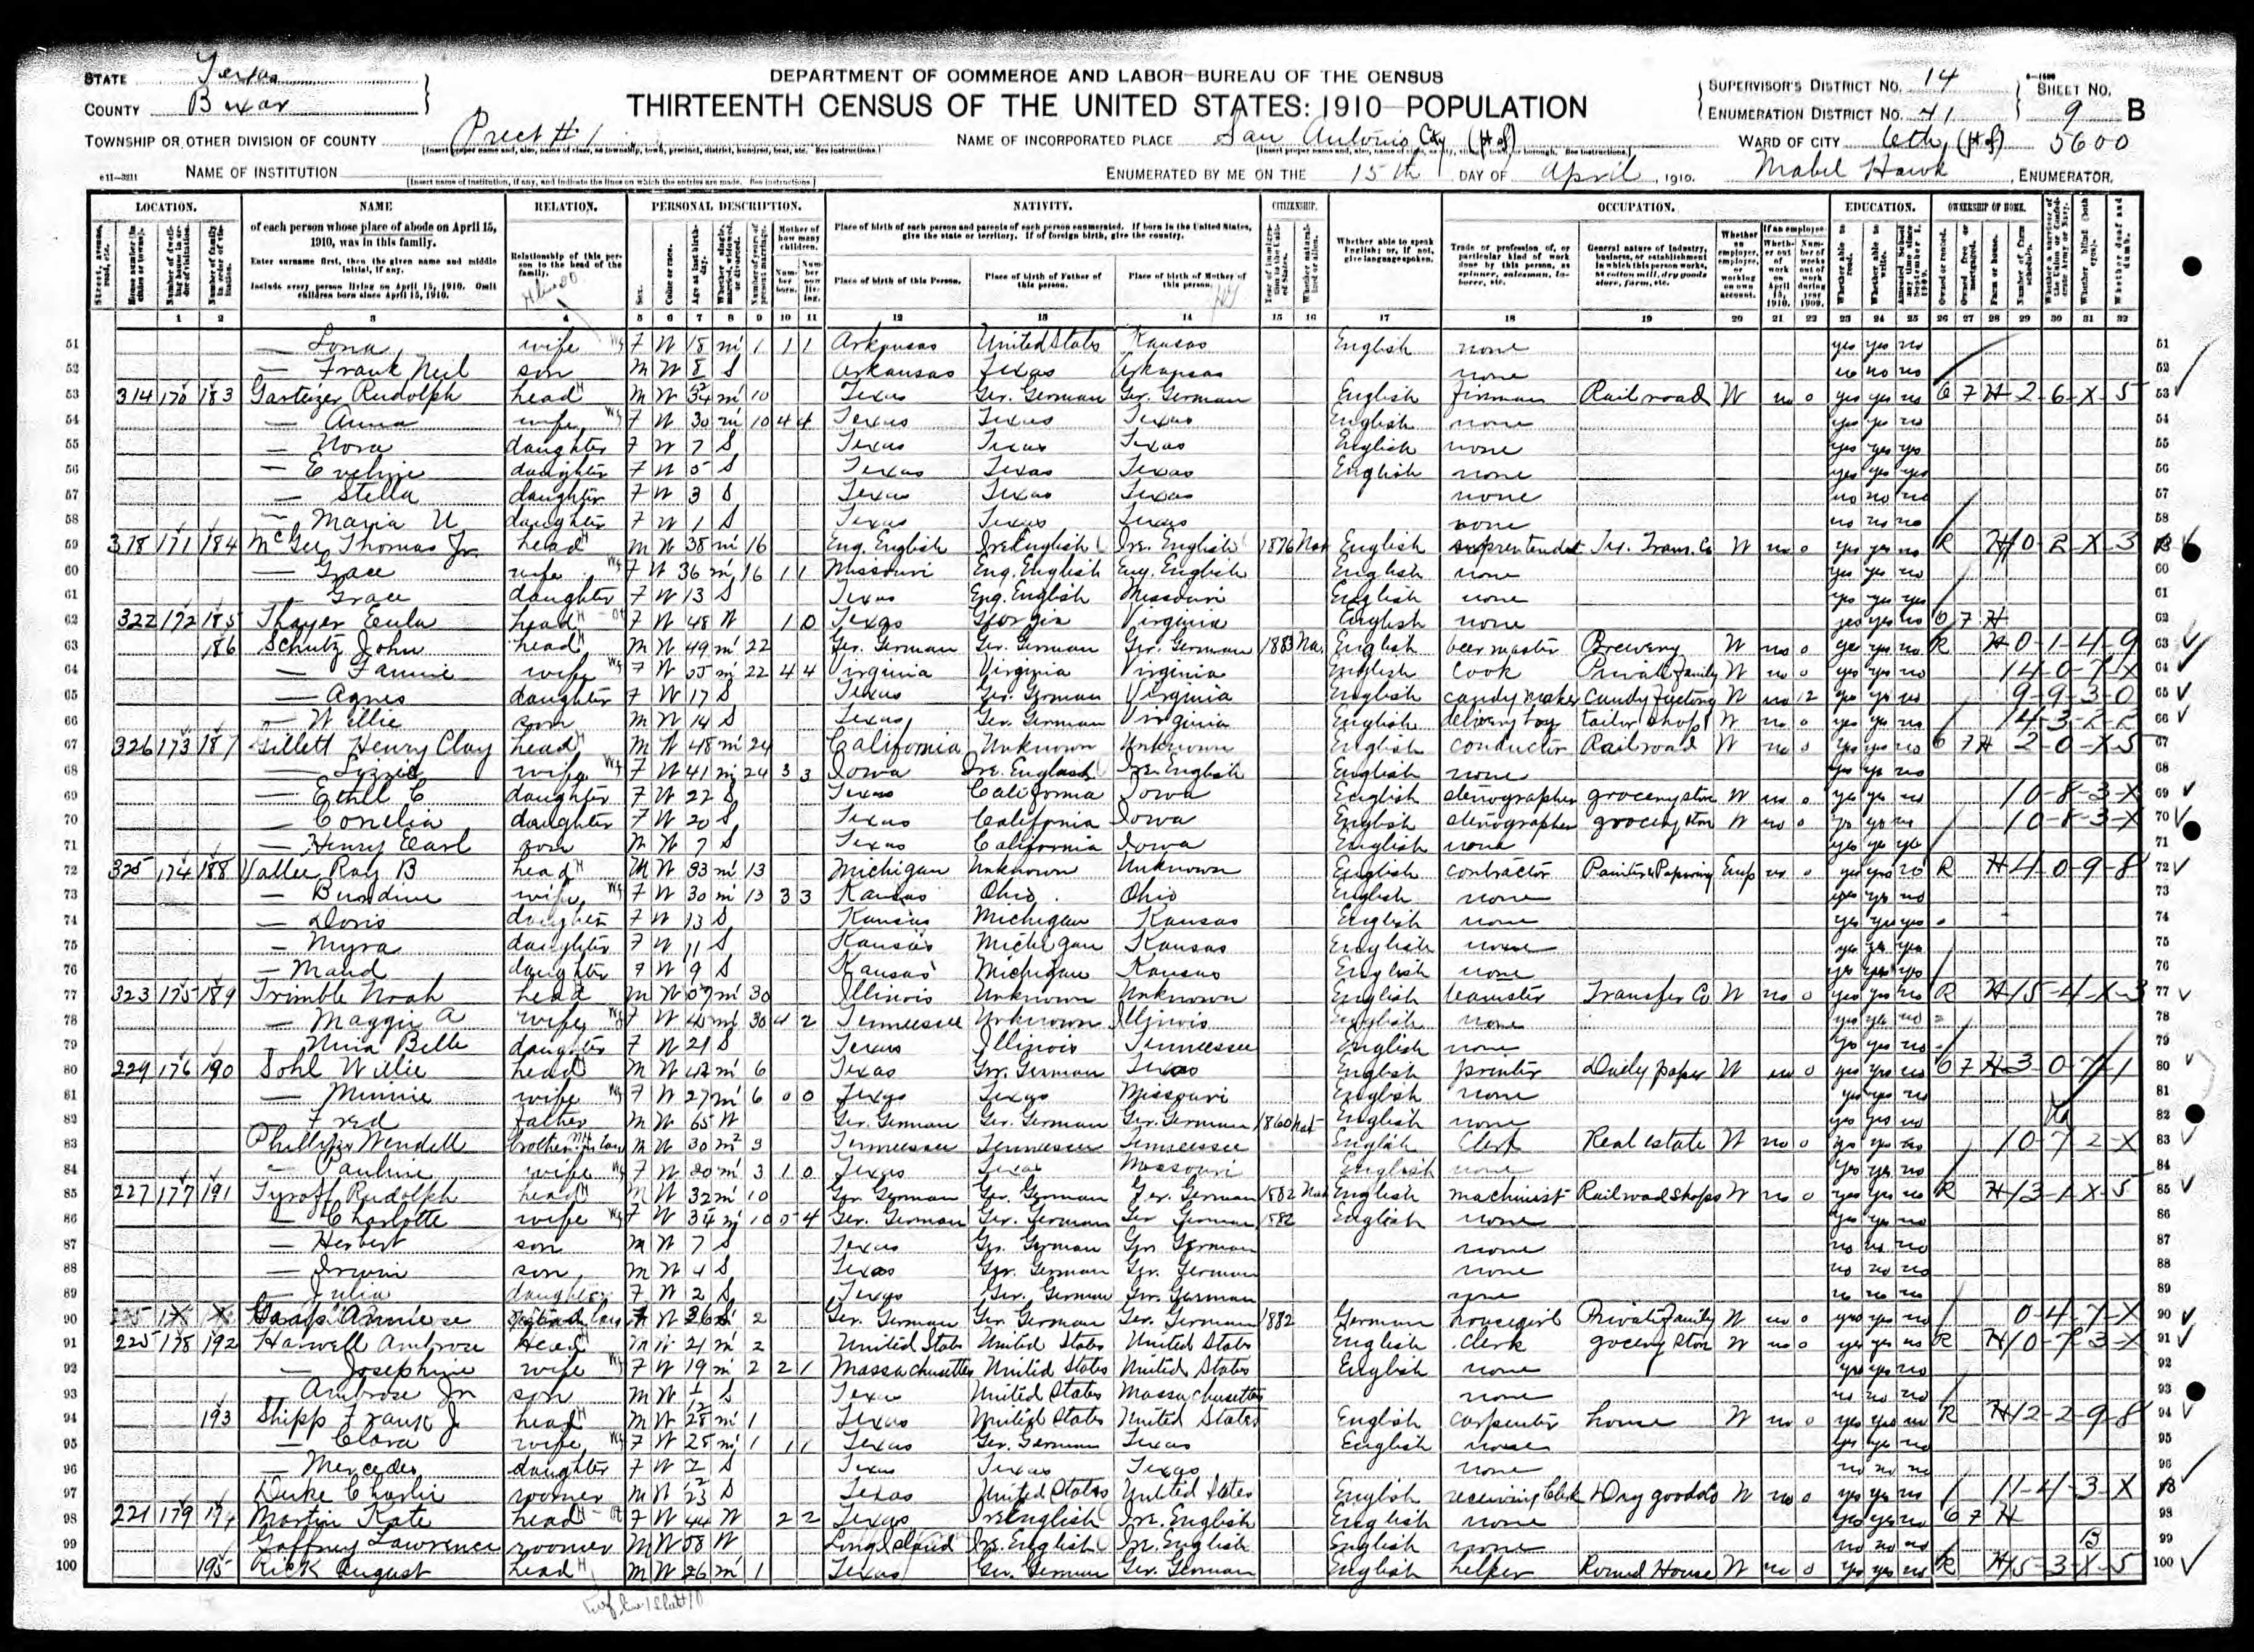 STATE Texas
COUNTY Bexar
DEPARTMENT OF COMMERCE AND LABOR—BUREAU OF THE CENSUS
THIRTEENTH CENSUS OF THE UNITED STATES: 1910—POPULATION
SUPERVISOR'S DISTRICT No. 14
ENUMERATION DISTRICT No. 41
SHEET No. 9 B
TOWNSHIP OR OTHER DIVISION OF COUNTY Prect #1
NAME OF INCORPORATED PLACE San Antonio City
WARD OF CITY 6th 5600
NAME OF INSTITUTION
ENUMERATED BY ME ON THE 15th DAY OF April, 1910. Mabel Hawk, ENUMERATOR.
LOCATION. NAME RELATION. PERSONAL DESCRIPTION. NATIVITY. CITIZENSHIP. OCCUPATION. EDUCATION. OWNERSHIP OF HOME.
of each person whose place of abode on April 15, 1910, was in this family.
Enter surname first, then the given name and middle initial, if any.
Include every person living on April 15, 1910. Omit children born since April 15, 1910.
Relationship of this person to the head of the family.
Place of birth of each person and parents of each person enumerated. If born in the United States, give the state or territory. If of foreign birth, give the country.
Place of birth of this Person. Place of birth of Father of this person. Place of birth of Mother of this person.
Whether able to speak English; or, if not, give language spoken.
1 2 3 4 5 6 7 8 9 10 11 12 13 14 15 16 17 18 19 20 21 22 23 24 25 26 27 28 29 30 31 32
51 — Lona wife F W 18 m 1 1 1 Arkansas United States Kansas English none yes yes no 51
52 — Frank Neil son M W S Arkansas Texas Arkansas none no no no 52
53 314 170 183 Garteizer Rudolph head M W 34 m 10 Texas Ger. German Ger. German English fireman Railroad W no 0 yes yes no O F H 2-6-X-5 53
54 — Anna wife F W 30 m 10 4 4 Texas Texas Texas English none yes yes no 54
55 — Nora daughter F W 7 S Texas Texas Texas English none yes yes yes 55
56 — Eveline daughter F W 5 S Texas Texas Texas English none yes yes yes 56
57 — Stella daughter F W 3 S Texas Texas Texas none no no no 57
58 — Maria U daughter F W 1 S Texas Texas Texas none no no no 58
59 318 171 184 McGee Thomas Jr. head M W 38 m 16 Eng. English Ire English Ire. English 1876 Nat English suprentendet Tr. Trans. Co W no 0 yes yes no R H 0-2-X-3
60 — Grace wife F W 36 m 16 1 1 Missouri Eng. English Eng. English English none yes yes no 60
61 — Grace daughter F W 13 S Texas Eng. English Missouri English none yes yes yes 61
62 322 172 185 Thayer Eula head F W 48 W 1 0 Texas Georgia Virginia English none yes yes no O F H 62
63 186 Schutz John head M W 49 m 22 Ger. German Ger. German Ger. German 1883 Na. English beer master Brewery W no 0 yes yes no R H 0-1-4-9 63
64 — Fannie wife F W 55 m 22 4 4 Virginia Virginia Virginia English cook Private Family W no 0 yes yes no 14-0-7-X 64
65 — Agnes daughter F W 17 S Texas Ger. German Virginia English candy maker Candy Factory W no 12 yes yes no 9-9-3-0 65
66 — Willie son M W 14 S Texas Ger. German Virginia English delivery boy tailor shop W no 0 yes yes no 14-3-2-2 66
67 326 173 187 Gillett Henry Clay head M W 48 m 24 California Unknown Unknown English conductor Railroad W no 0 yes yes no O F H 2-0-X-5 67
68 — Lizzie wife F W 41 m 24 3 3 Iowa Ire. English Ire. English English none yes yes no 68
69 — Ethel C daughter F W 22 S Texas California Iowa English stenographer grocery store W no 0 yes yes no 10-8-3-X 69
70 — Conelia daughter F W 20 S Texas California Iowa English stenographer grocery store W no 0 yes yes no 10-8-3-X 70
71 — Henry Earl son M W 7 S Texas California Iowa English none yes yes yes 71
72 325 174 188 Vallee Ray B head M W 33 m 13 Michigan Unknown Unknown English contractor Painter & Papering Emp no 0 yes yes no R H 4-0-9-8 72
73 — Burdine wife F W 30 m 13 3 3 Kansas Ohio Ohio English none yes yes no 73
74 — Doris daughter F W 13 S Kansas Michigan Kansas English none yes yes yes 74
75 — Myra daughter F W 11 S Kansas Michigan Kansas English none yes yes yes 75
76 — Maud daughter F W 9 S Kansas Michigan Kansas English none yes yes yes 76
77 323 175 189 Trimble Noah head M W 57 m 30 Illinois Unknown Unknown English teamster Transfer Co W no 0 yes yes no R H 15-4-X-3 77
78 — Maggie A wife F W m 30 4 2 Tennessee Unknown Illinois English none yes yes no 78
79 — Nina Belle daughter F W 21 S Texas Illinois Tennessee English none yes yes no 79
80 229 176 190 Sohl Willie head M W 42 m 6 Texas Ger. German Texas English printer Daily paper W no 0 yes yes no O F H 3-0-7-1 80
81 — Minnie wife F W 27 m 6 0 0 Texas Texas Missouri English none yes yes no 81
82 — Fred father M W 65 W Ger. German Ger. German Ger. German 1860 nat English none yes yes no 82
83 Phillips Wendell brother in law M W 30 m2 3 Tennessee Tennessee Tennessee English Clerk Real estate W no 0 yes yes no 10-7-2-X 83
84 — Pauline wife F W 20 m 3 1 0 Texas Texas Missouri English none yes yes no 84
85 227 177 191 Tyroff Rudolph head M W 32 m 10 Ger German Ger. German Ger. German 1882 Nat English machinist Railroad shops W no 0 yes yes no R H 13-1-X-5 85
86 — Charlotte wife F W 34 m 10 5 4 Ger. German Ger. German Ger German 1882 English none yes yes no 86
87 — Herbert son M W 7 S Texas Ger. German Ger German none no no no 87
88 — Irwin son M W 4 S Texas Ger. German Ger. German none no no no 88
89 — Julia daughter F W 2 S Texas Ger. German Ger. German none no no no 89
90 225 Annie F W 26 S 2 Ger. German Ger. German Ger. German 1882 German housegirl Private Family W no 0 yes yes no 0-4-7-X 90
91 225 178 192 Harwell Ambrose Head M W 21 m 2 United States United States United States English Clerk grocery store W no 0 yes yes no R H 10-7-3-X 91
92 — Josephine wife F W 19 m 2 2 1 Massachusettes United States United States English none yes yes no 92
93 — Ambrose Jr son M W S Texas United States Massachusettes none no no no 93
94 193 Shipp Frank J head M W 28 m 1 Texas United States United States English carpenter house W no 0 yes yes no R H 12-2-9-8 94
95 — Clara wife F W 25 m 1 1 1 Texas Ger. German Texas English none yes yes no 95
96 — Mercedes daughter F W S Texas Texas Texas none no no no 96
97 Duke Charlie roomer M W 23 S Texas United States United States English receiving Clerk Dry goods W no 0 yes yes no 11-4-3-X
98 221 179 194 Martin Kate head F W 44 W 2 2 Texas Ire English Ire. English English none yes yes no O F H 98
99 Gaffney Lawrence roomer M W 58 W Long Island Ire. English Ire. English English none no no no B 99
100 195 Rick August head M W 26 m 1 Texas Ger. German Ger. German English helper Round House W no 0 yes yes no R H 15-3-X-5 100